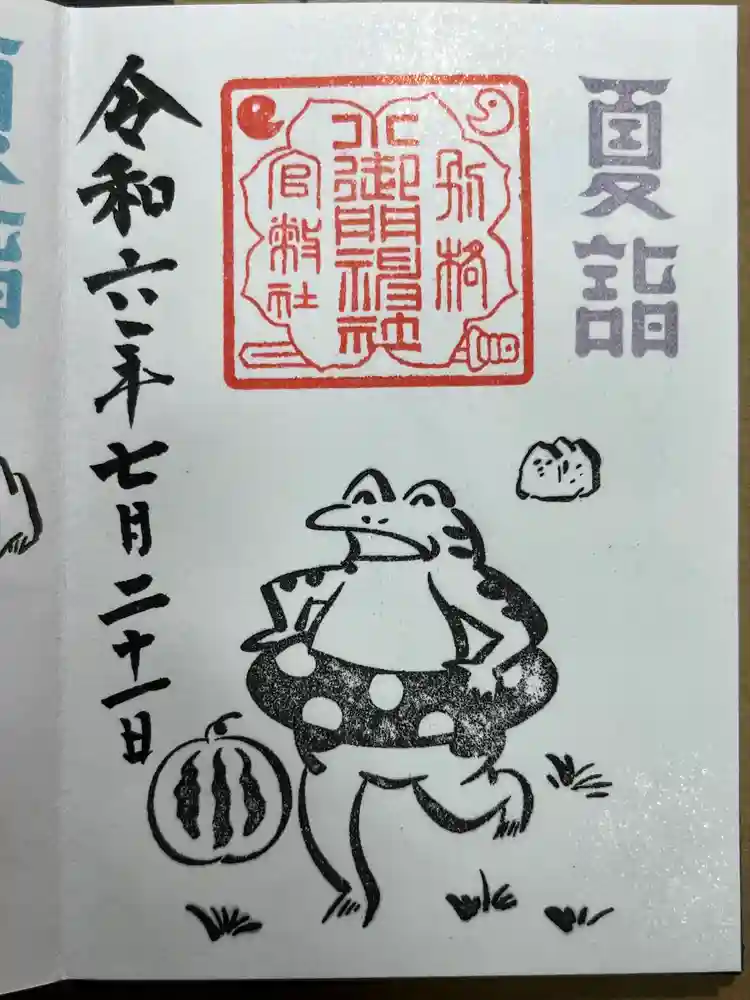 夏詣
別格
小御門神社
官幣社
令和六年七月二十一日